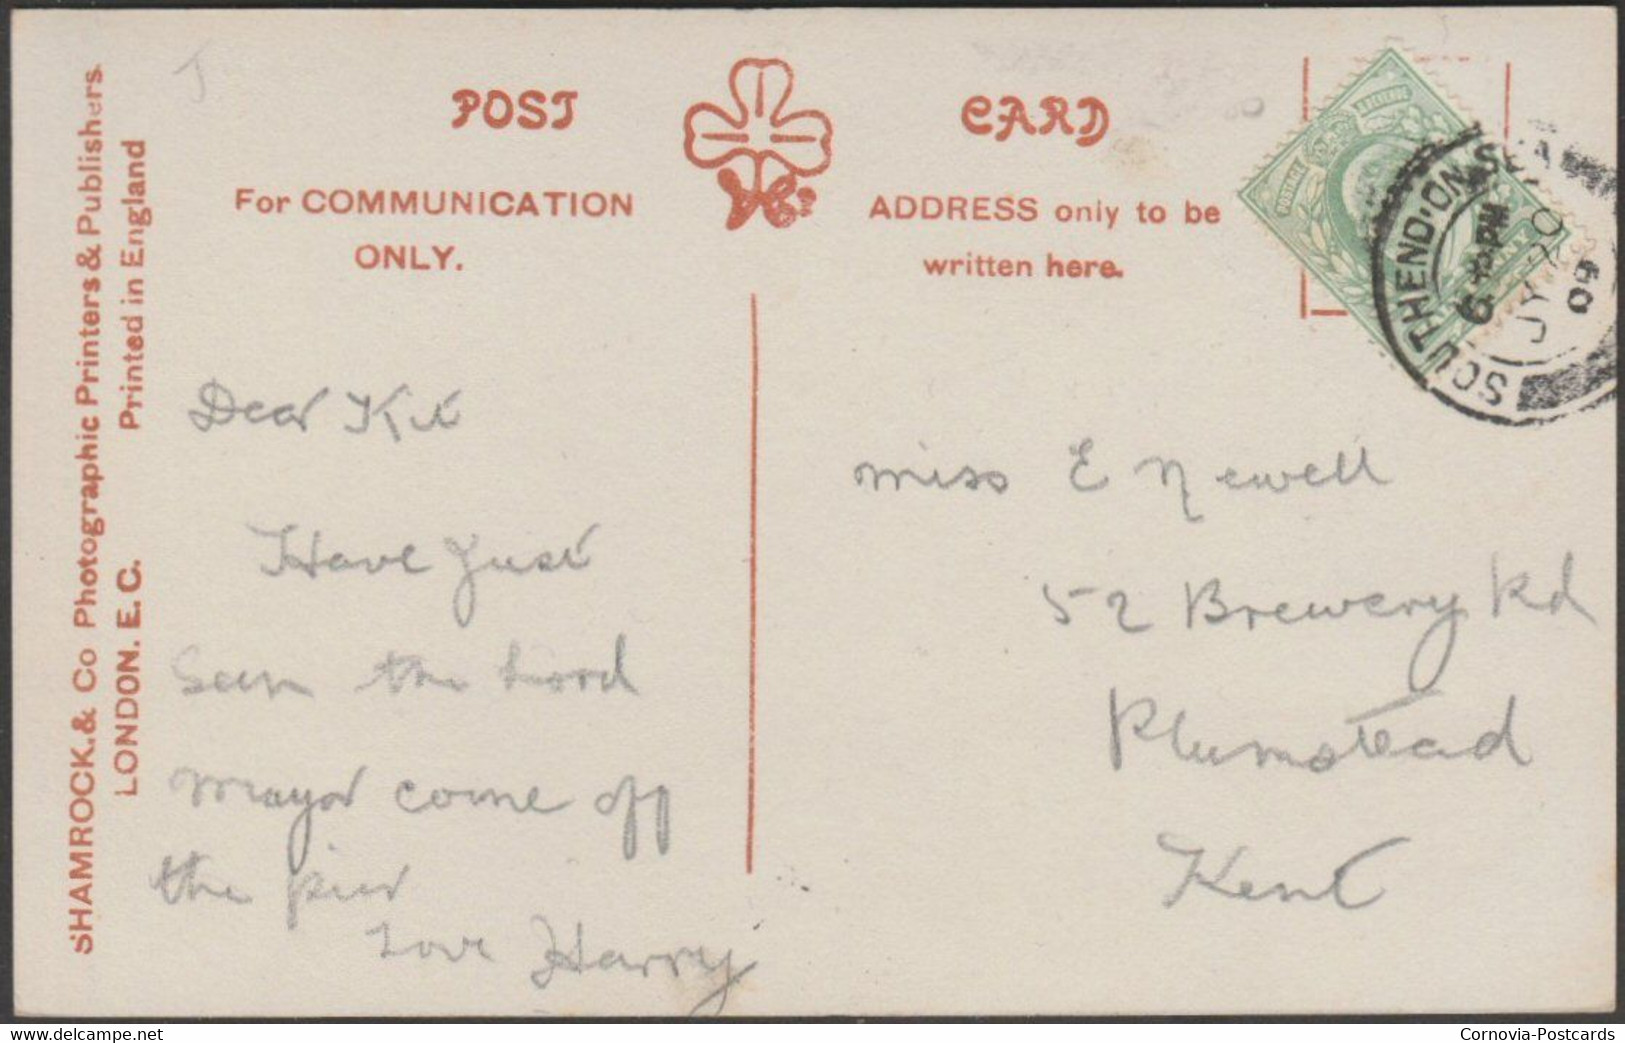 SHAMROCK.& Co Photographic Printers & Publishers.
LONDON. E.C. Printed in England
POST CARD
For COMMUNICATION
ONLY.
ADDRESS only to be
written here.
POSTAGE
SOUTHEND·ON SEA
6 PM
JY 20
09
Dear Kit
Have Just
Seen the Lord
mayor come off
the pier
Love Harry
miss E Newell
52 Brewery Rd
Plumstead
Kent
delcampe.net
Cornovia-Postcards